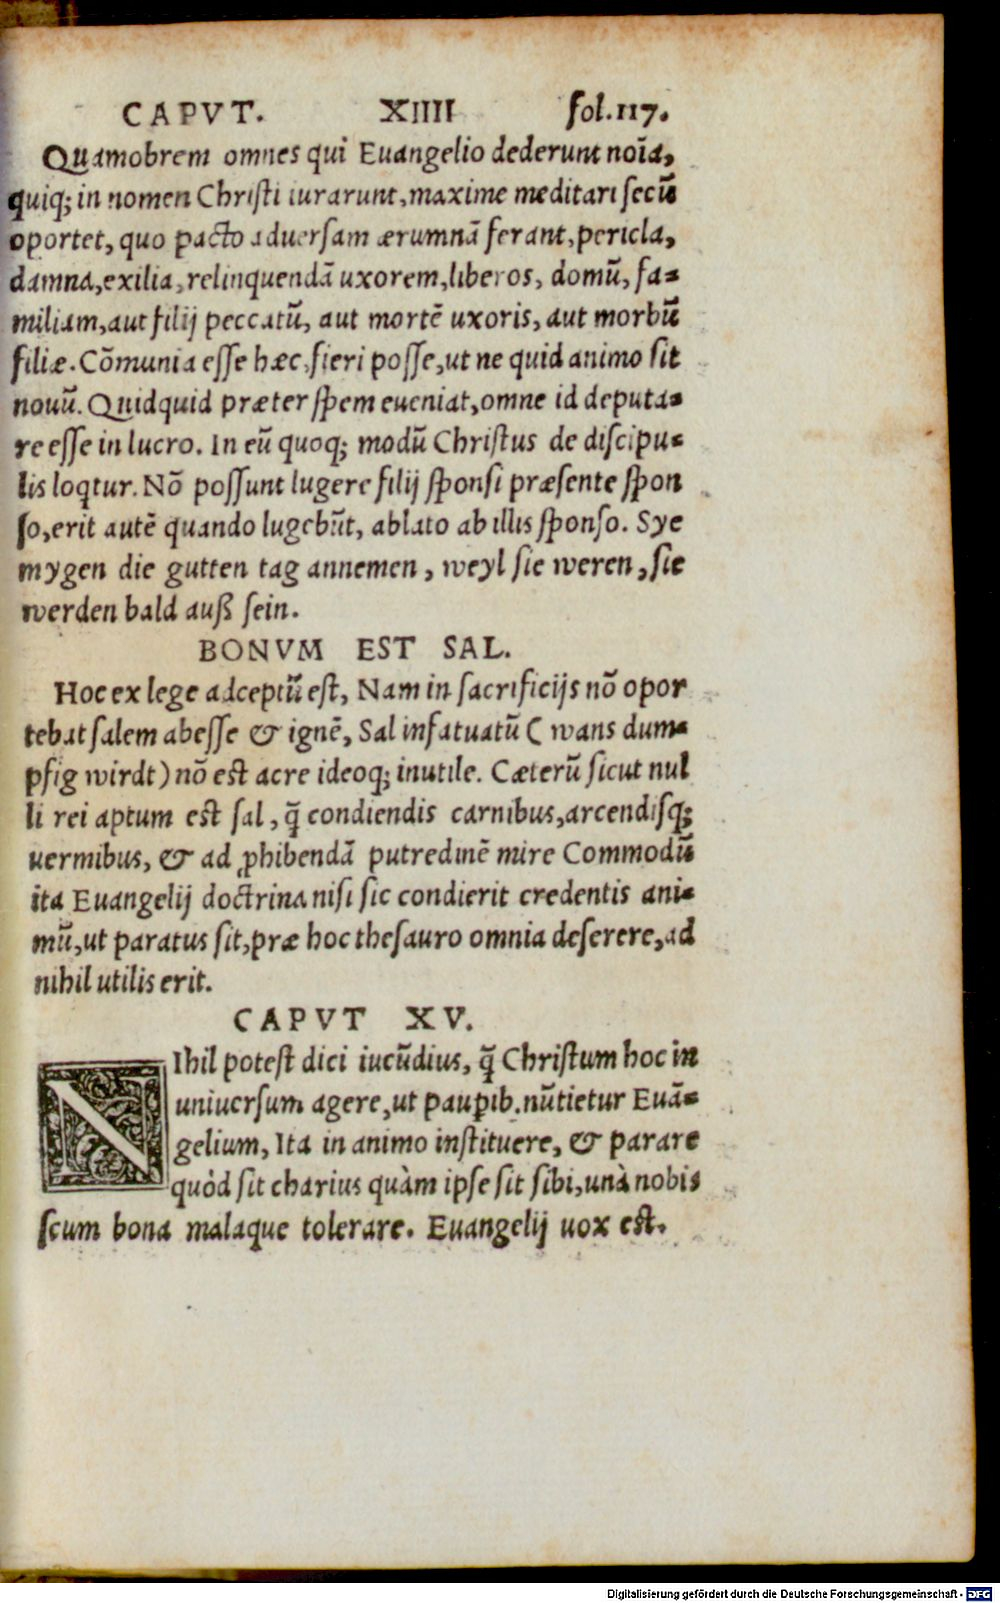 CAPVT. XIIII fol.117.
Quamobrem omnes qui Euangelio dederunt noĩa,
quiq; in nomen Christi iurarunt, maxime meditari secũ
oportet, quo pacto aduersam ærumnã ferant, pericla,
damna, exilia, relinquendã uxorem, liberos, domũ, fa-
miliam, aut filij peccatũ, aut mortẽ uxoris, aut morbũ
filiæ. Cõmunia esse hæc, fieri posse, ut ne quid animo sit
nouũ. Quidquid præter spem eueniat, omne id deputa-
re esse in lucro. In eũ quoq; modũ Christus de discipu-
lis loqtur. Nõ possunt lugere filij sponsi præsente spon
so, erit autẽ quando lugebũt, ablato ab illis sponso. Sye
mygen die gutten tag annemen, weyl sie weren, sie
werden bald auß sein.
BONVM EST SAL.
Hoc ex lege adceptũ est, Nam in sacrificijs nõ opor
tebat salem abesse & ignẽ, Sal infatuatũ ( wans dum-
pfig wirdt) nõ est acre ideoq; inutile. Cæterũ sicut nul
li rei aptum est sal, q̃ condiendis carnibus, arcendisq;
uermibus, & ad ꝓhibendã putredinẽ mire Commodũ
ita Euangelij doctrina nisi sic condierit credentis ani-
mũ, ut paratus sit, præ hoc thesauro omnia deserere, ad
nihil utilis erit.
CAPVT XV.
NIhil potest dici iucũdius, q̃ Christum hoc in
uniuersum agere, ut pauꝑib. nũtietur Euã-
gelium, Ita in animo instituere, & parare
quòd sit charius quàm ipse sit sibi, unà nobis
scum bona malaque tolerare. Euangelij uox est.
Digitalisierung gefördert durch die Deutsche Forschungsgemeinschaft - DFG